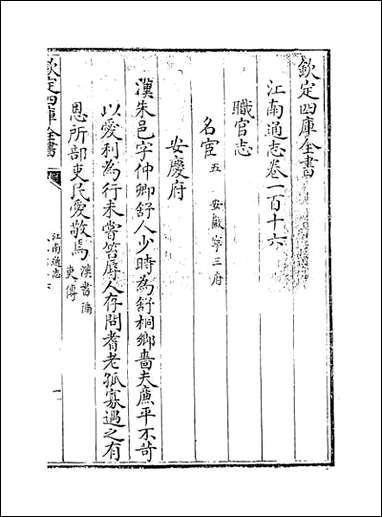 欽定四庫全書
江南通志卷一百十六
職官志
名宦五 安徽寧三府
安慶府
漢朱邑字仲卿舒人少時為舒桐鄉嗇夫廉平不苛
以愛利為行未嘗笞辱人存問耆老孤寡遇之有
恩所部吏民愛敬焉漢書循吏傳
欽定四庫全書
江南通志
一